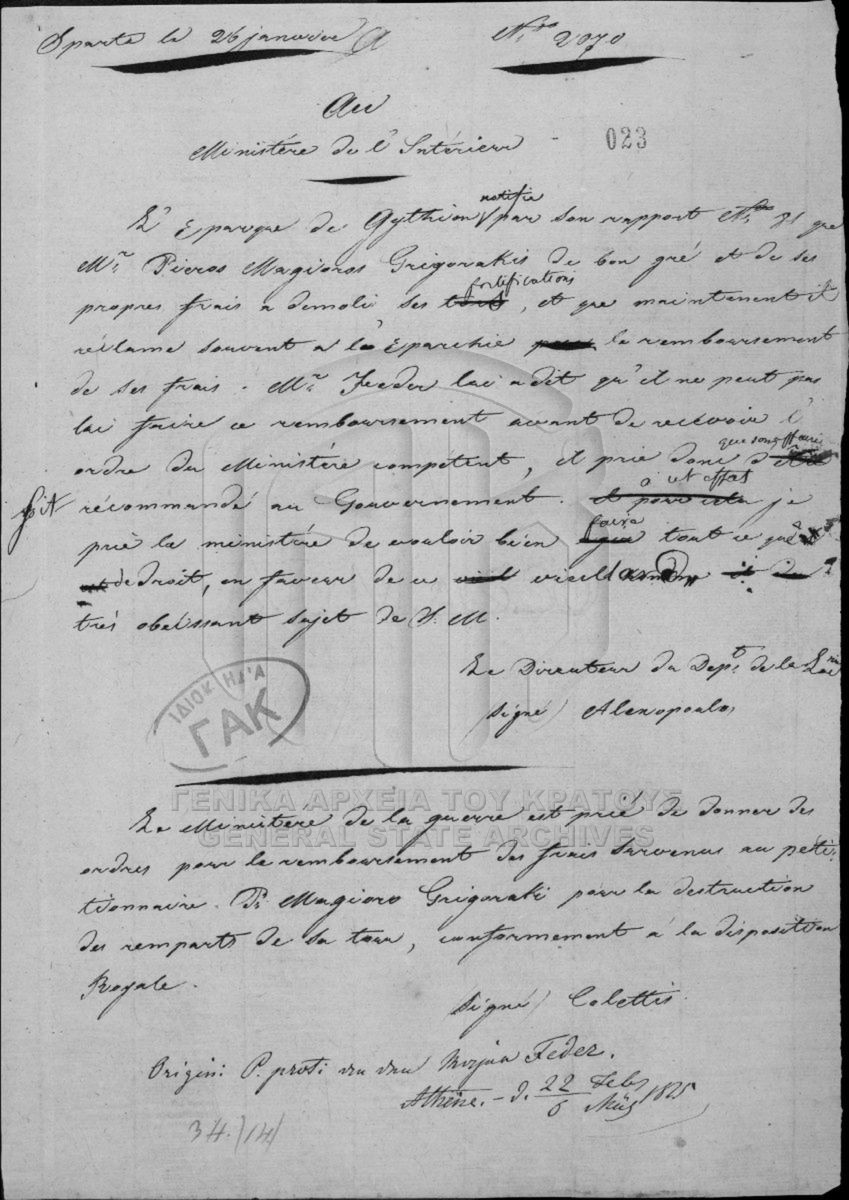 Sparte le 26 janvier
No 2070
Au
Ministére de l'Intérieur
023
notifie
L'Eparque de Gythion par son rapport No 71 que
Mr. Pieros Magioros Grigorakis de bon gré et de ses
fortifications
propres frais a demoli ses tours, et que maintenant il
réclame souvent a l'Eparchie pour le remboursement
de ses frais. Mr. Feeder lui a dit qu'il ne peut pas
lui faire ce remboursement avant de recevoir l'
que son affaire
ordre du Ministére competent, et prie donc d'être
à cet effet
soit récommandé au Gouvernement. et pour cela je
faire
prie le ministére de vouloir bien que tout ce que
de droit, en faveur de ce vieillard
trés obeïssant sujet de S. M.
Le Directeur du Dept. de la Laconie
signé) Alexopoulos
ΙΔΙΟΚΤΗΣΙΑ
ΓΑΚ
ΓΕΝΙΚΑ ΑΡΧΕΙΑ ΤΟΥ ΚΡΑΤΟΥΣ
GENERAL STATE ARCHIVES
Le Ministére de la guerre est prié de donner des
ordres pour le remboursement des frais survenus au péti-
tionnaire. Pi Magioro Grigoraki pour la destruction
des remparts de sa tour, conformement á la disposition
Royale.
signé) Colettis.
Origin: P. proti Feder.
Athène. - d. 22 Feb
6 März 1835
34./14/